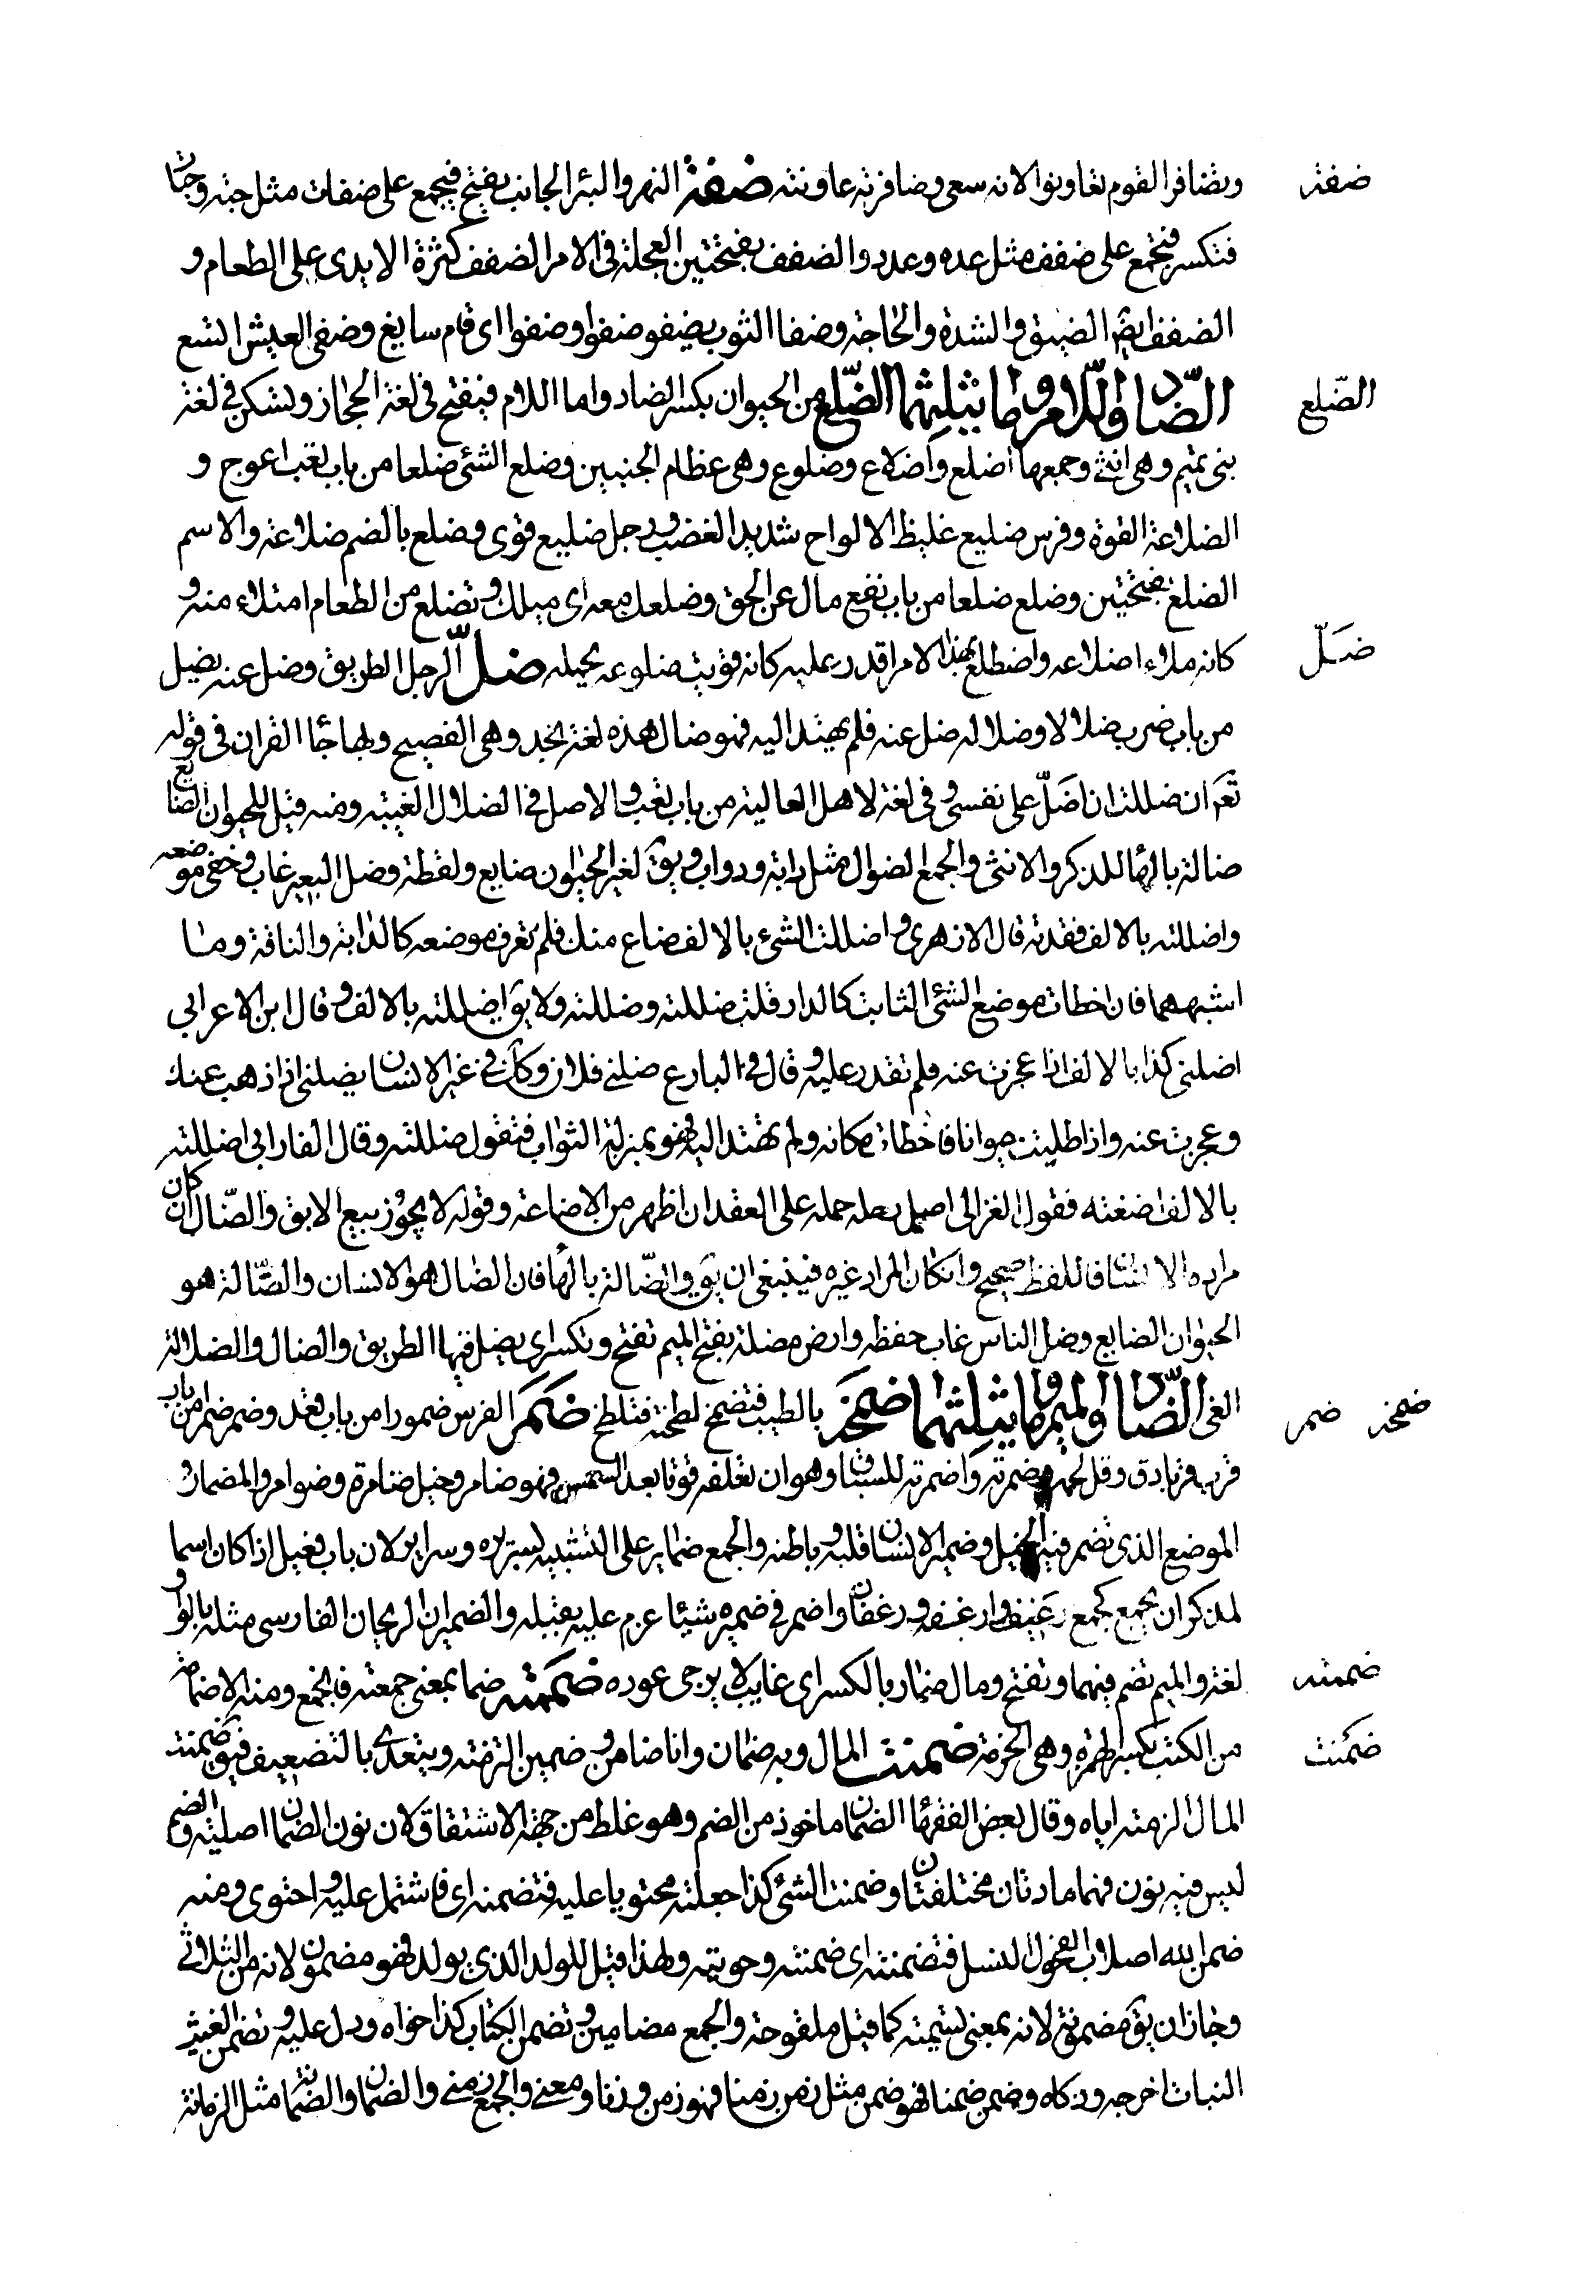 وتضافر القوم تعاونوا لانه سعى وضافرته عاونته ضفة النهر والبئر الجانب يفتح فيجمع على ضفات مثل جنه وجنات
ضفة
فتكسر فتجمع على ضفف مثل عده وعدد والضفف بفتحتين العجلة فى الامر الضفف كثرة الايدى على الطعام و
الضفف ايضا الضيق والشدة والحاجة وضفا الثوب يضفو ضفوا وضفوا اى فام سابغ وضفى العيش اتسع
الضاد واللام وما يثلثهما الضلع من الحيوان بكسر الضاد واما اللام فيفتح فى لغة الحجاز وتسكن فى لغة
الضلع
بنى تميم وهى انثى وجمعها اضلع واضلاع وضلوع وهى عظام الجنبين وضلع الشئ ضلعا من باب تعب اعوج و
الضلاعة القوة وفرس ضليع غليظ الالواح شديد الغضب ورجل ضليع قوى وضلع بالضم ضلاعة والاسم
الضلع بفتحتين وضلع ضلعا من باب نفع مال عن الحق وضلعك معه اى ميلك وتضلع من الطعام امتلاء منه و
كانه ملاء اضلاعه واضطلع بهذا الامر اقدر عليه كانه قويت ضلوعه بحمله ضل الرجل الطريق وضل عنه يضل
ضَلّ
من باب ضرب ضلالا وضلالة ضل عنه فلم يهتد اليه فهو ضال هذه لغة نجد وهى الفصيح وبها جاء القران فى قوله
تعم ان ضللت ان اضَلّ على نفسى وفى لغة لاهل العالية من باب تعب والاصل فى الضلال الغيبة ومنه قيل للحيوان الضايع
ضالة بالهاء للذكر والانثى والجمع الضوال مثل دابة ودواب ويق لغير الحيوان ضايع ولقطة وضل البعير غاب وخفى موضعه
واضللته بالالف فقدته قال الازهرى و اضللت الشئ بالالف ضاع منك فلم تعرف موضعه كالدابة والناقة وما
اشبههما فان اخطات موضع الشئ الثابت كالدار قلت ضللته وضللته ولا يق اضللته بالالف وقال ابن الاعرابي
اضلنى كذا بالالف اذا عجزت عنه فلم تقدر عليه وقال فى البارع ضلنى فلان وكان فى غير الانسان يضلنى اذا ذهب عنك
وعجزت عنه واذا طلبت حيوانا فاخطاءت مكانه ولم تهتد اليه فهو بمنزلة الثواب فتقول ضللته وقال الفارابى اضللته
بالالف اضعته فقول الغزالى اصل حمله على الفقدان اظهر من الاضاعة وقوله لا يجوز بيع الابق والضال ان كان
مراده الانسان فاللفظ صحيح وان كان المراد غيره فينبغى ان يق والضالة بالهاء فان الضال هو الانسان والضالة هو
الحيوان الضايع وضل الناس غاب حفظه وارض مضلة بفتح الميم تفتح وتكسر اى يضل فيها الطريق والضال والضلالة
الغى الضاد والميم وما يثلثهما ضمخ بالطيب فتضمخ لطخة فتلطخ ضَمَرَ الفرس ضمورا من باب قعد وضمر ضمرا من باب
ضمخ ضمر
قرب قربا دق وقل لحمه وضمرته واضمرته للسباق وهو ان تعلفه قوتا بعد السمن فهو ضامر وخيل ضامرة وضوامر والمضمار
الموضع الذى تضمر فيه الخيل وضمير الانسان قلبه وباطنه والجمع ضماير على التشبيه بسريره وسراير لان باب فعيل اذا كان اسما
لمذكر ان يجمع كجمع رغيف وارغفة ورغفان واضمر فى ضميره شيئا عزم عليه بقلبه والضميران الريحان الفارسى مثله بالواو
لغة والميم تضم فيهما وتفتح ومال ضمار بالكسر اى غايب لا يرجى عوده ضممته ضما بمعنى جمعته فانجمع ومنه الاضمامة
ضممته
من الكتب بكسر الهمزه وهى الحزمة ضمنت المال وبه ضمان وانا ضامن وضمين التزمته ويتعدى بالتضعيف فيق ضمنته
ضمنت
المال الزمته اياه وقال بعض الفقهاء الضمان ماخوذ من الضم وهو غلط من جهة الاشتقاق لان نون الضمان اصلية والضم
ليس فيه نون فهما مادتان مختلفتان وضمنت الشئ كذا جعلته محتويا عليه فتضمنه اى فاشتمل عليه واحتوى ومنه
ضمن الله اصلاب الفحول النسل فتضمنته اى ضمنته وحوته ولهذا قيل للولد الذى يولد فهو مضمون لانه من الثلاثى
وجاز ان يق مضمونة لانه بمعنى نسمة كما قيل ملقوحة والجمع مضامين وتضمن الكتاب كذا حواه ودل عليه وتضمن الغيث
النبات اخرجه وزكاه وضمن ضمنا فهو ضمن مثل زمن زمنا فهو زمن وزنا ومعنى والجمع زمنى والضمان والضمانة مثل الزمانة